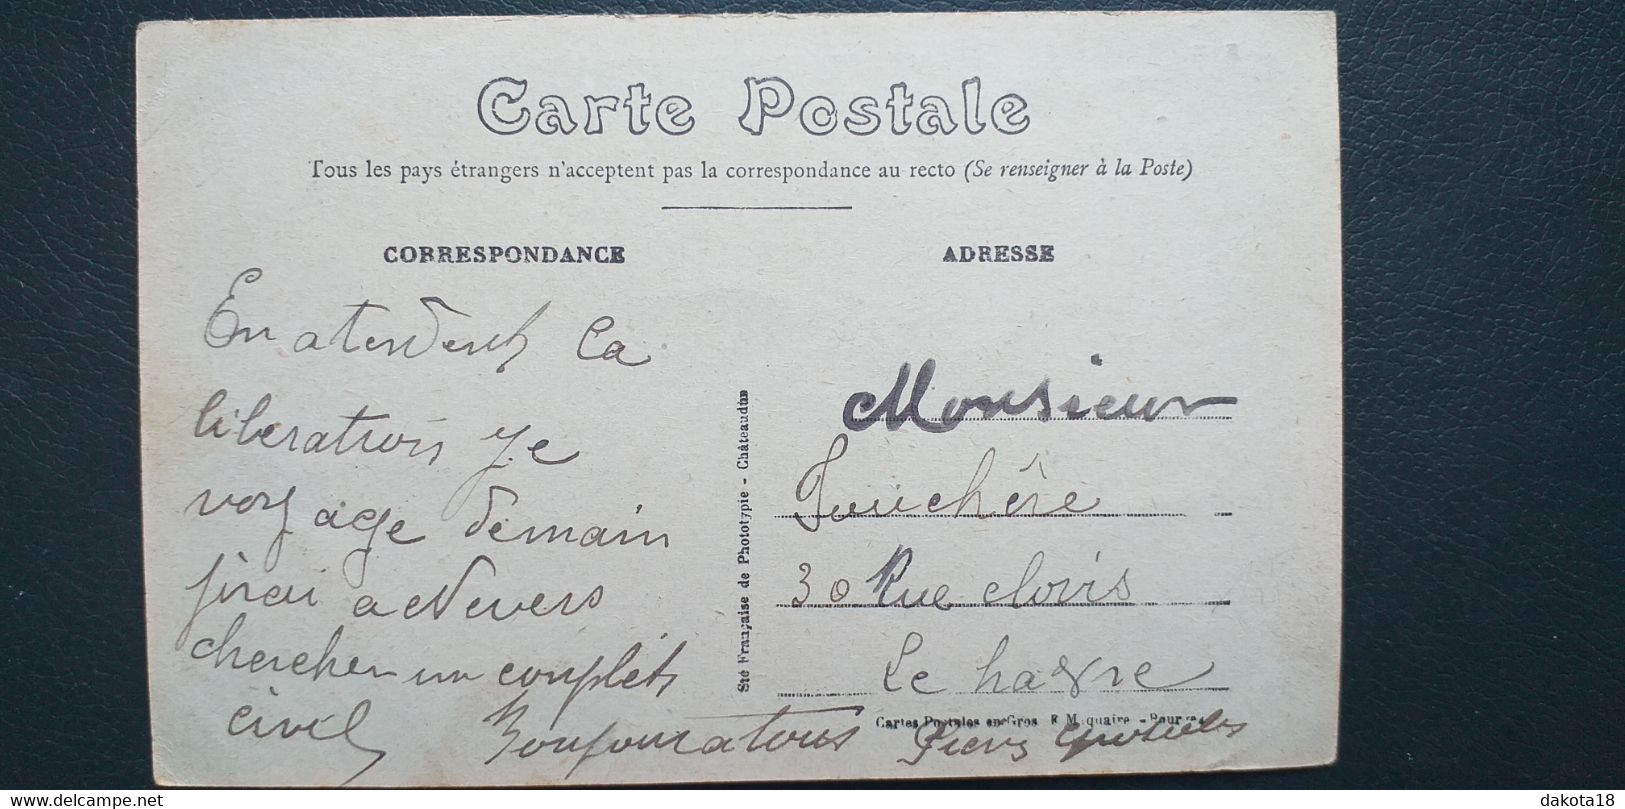 Carte Postale
Tous les pays étrangers n'acceptent pas la correspondance au recto (Se renseigner à la Poste)
CORRESPONDANCE
En atendent la
liberatiois je
voyage demain
jirai a Nevers
chercher un complets
civil Bonjour a tous
Sté Française de Phototypie - Châteaudun
ADRESSE
Monsieur
Fouchère
30 Rue clovis
Le havre
Cartes Postales en Gros
delcampe.net
dakota18